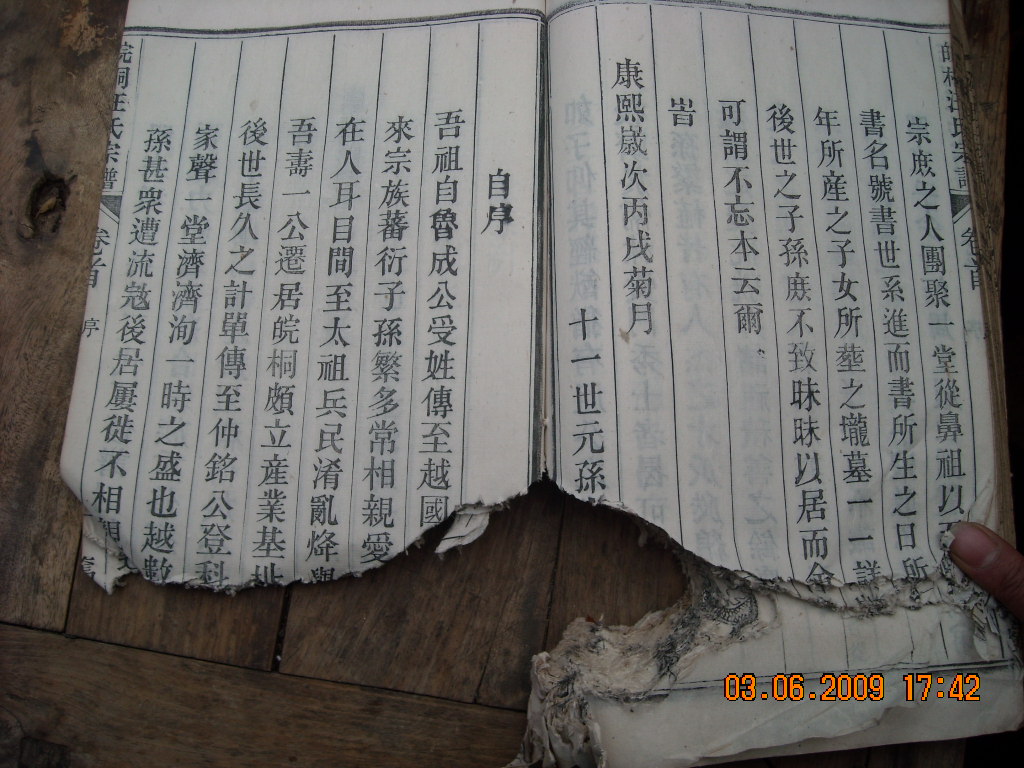 皖桐汪氏宗譜 卷首
宗庶之人團聚一堂從鼻祖以
書名號書世系進而書所生之日所
年所産之子女所塟之壠墓一一詳
後世之子孫庶不致昧昧以居而
可謂不忘本云爾
旹
康熙歲次丙戌菊月
十一世元孫
自序
吾祖自魯成公受姓傳至越國
來宗族蕃衍子孫繁多常相親愛
在人耳目間至太祖兵民淆亂烽
吾壽一公遷居皖桐頗立産業基址
後世長久之計單傳至仲銘公登科
家聲一堂濟濟洵一時之盛也越數
孫甚衆遭流宼後居屢徙不相親
皖桐汪氏宗譜 卷首 序
03.06.2009 17:42